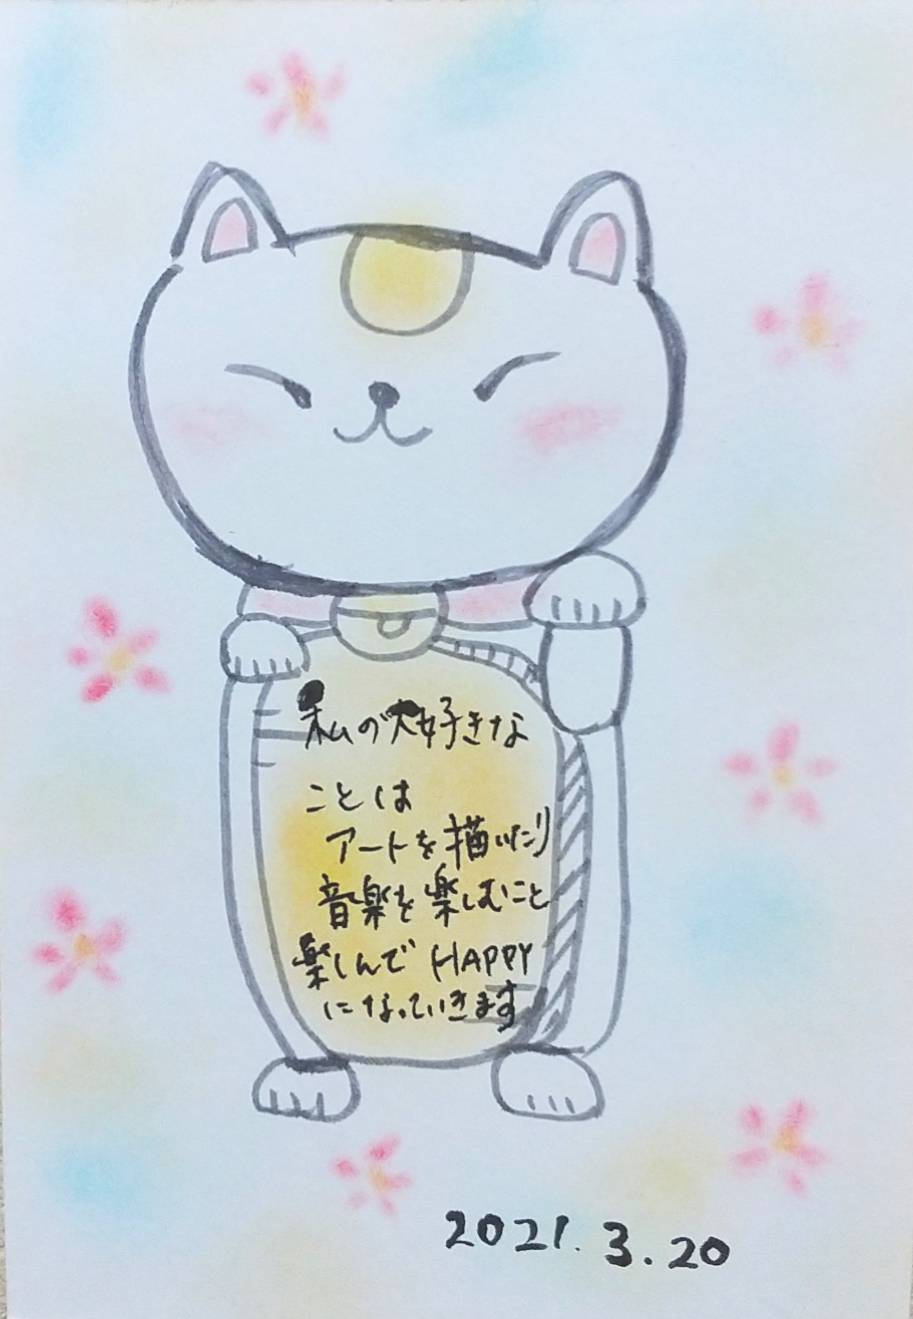 私の大好きな
ことは
アートを描いたり
音楽を楽しむこと
楽しんで HAPPY
になっていきます
2021.3.20